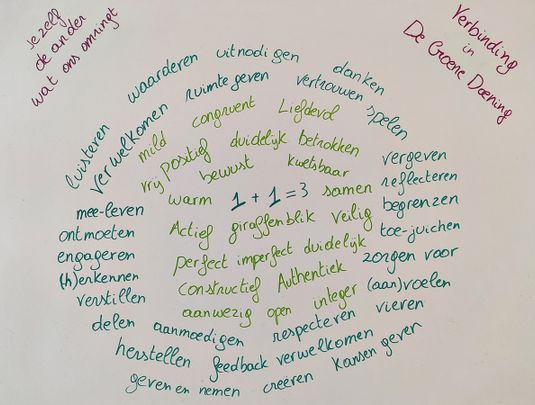 Jezelf
de ander
wat ons omringt
Verbinding
in
De Groene Daening
luisteren
waarderen
uitnodigen
danken
verwelkomen
ruimte geven
vertrouwen
spelen
mild
congruent
Liefdevol
vrij
positief
duidelijk
betrokken
vergeven
bewust
kwetsbaar
reflecteren
warm
1 + 1 = 3
samen
begrenzen
mee-leven
Actief
giraffenblik
veilig
toe-juichen
ontmoeten
perfect imperfect
duidelijk
zorgen voor
engageren
constructief
Authentiek
(aan)voelen
(h)erkennen
aanwezig
open
integer
vieren
verstillen
delen
aanmoedigen
respecteren
kansen geven
herstellen
feedback verwelkomen
geven en nemen
creëren